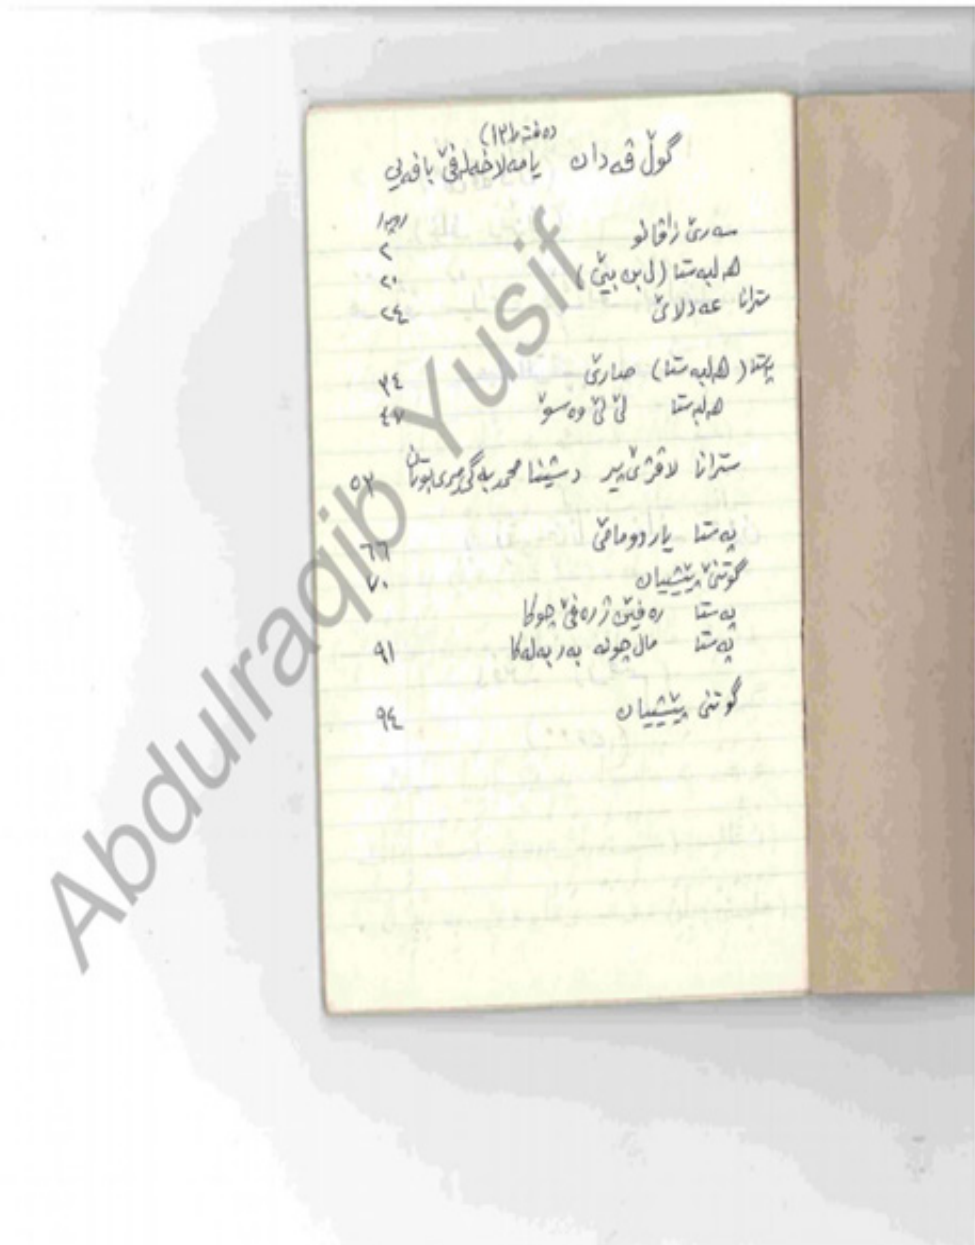 دەفتەر (١٢)
گوڵ ڤەدان یا مەلا خەلەفێ بافەیی
روپەل
سەرێ زاڤانو ٢
هەلبەستا (ل بن پێێ) ٢٠
سترانا عەدلایێ ٢٤
پەستا (هەلبەستا) صارێ ٣٤
هەلبەستا لێ لێ وەسو ٤٧
سترانا لاڤژێ پیر د شینا محمد بەگێ میرێ بوتان ٥٣
پەستا یار دومامێ ٦٦
گوتنێ پێشییان ٧٠
پەستا رەڤین ژ رەڤێ چوکا
پەستا مال چونە بەر بەلەکا ٩١
گوتنێ پێشییان ٩٤
Abdulraqib Yusif